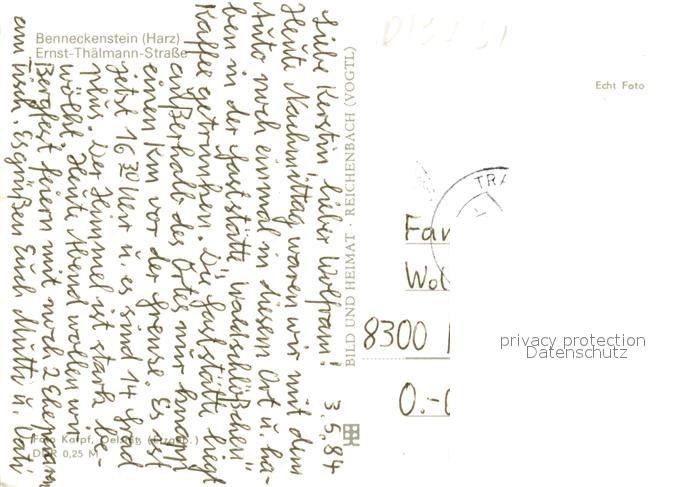 Benneckenstein (Harz)
Ernst-Thälmann-Straße
Liebe Kerstin, lieber Wolfram! 3.5.84
Heute Nachmittag waren wir mit dem
Auto noch einmal in diesem Ort u. ha-
ben in der Gaststätte „Waldschlößchen"
Kaffee getrunken. Die Gaststätte liegt
außerhalb des Ortes nur knapp
einen Km vor der Grenze. Es ist
jetzt 16 30 Uhr u. es sind 14 Grad
plus. Der Himmel ist stark be-
wölkt. Heute Abend wollen wir
Bergfest feiern mit noch 2 Ehepaaren
am Tisch. Es grüßen Euch Mutti u. Vati
BILD UND HEIMAT · REICHENBACH (VOGTL)
Foto Karpf, Oelsnitz (Erzgeb.)
DDR 0,25 M
Echt Foto
TRA
Fam
Wol
8300
privacy protection
Datenschutz